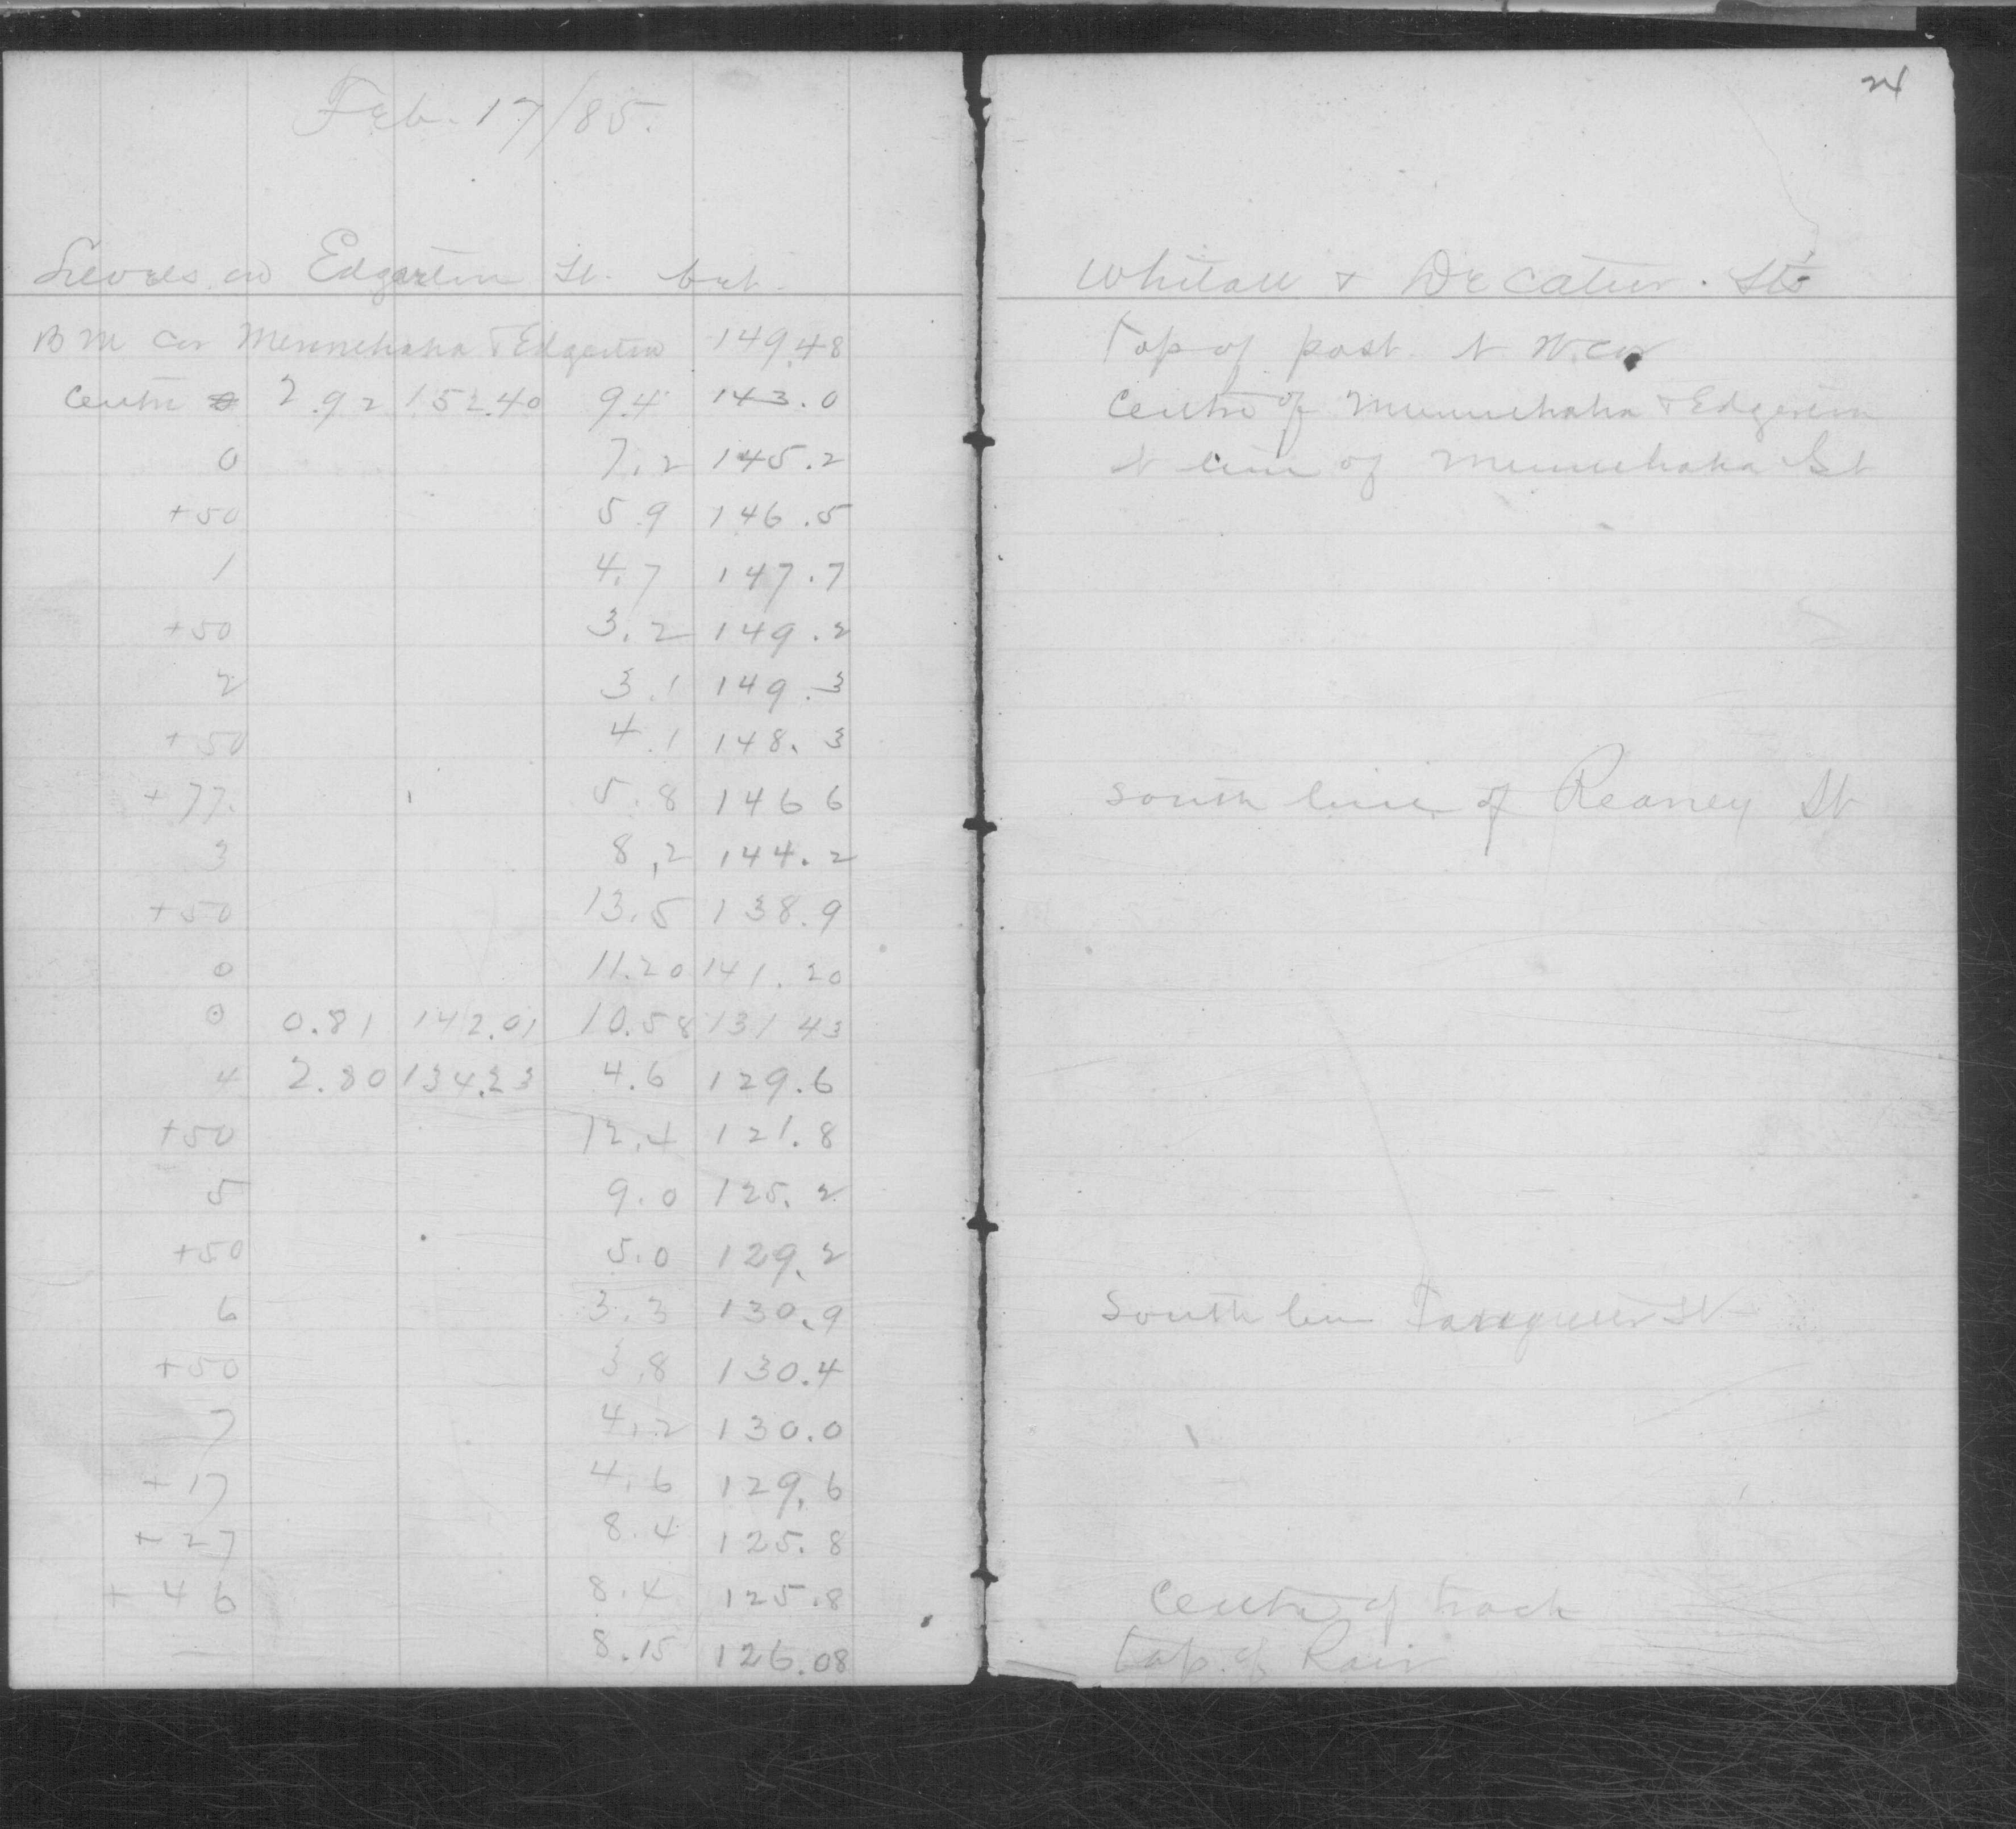 24
Feb. 17/85.
Levels on Edgerton St. bet. Whitall & Decatur. Sts
B M Cor Minnehaha & Edgerton 149.48 Top of post N. W. Cor
Centre 2.92 152.40 9.4 143.0 Centre of Minnehaha & Edgerton
0 7.2 145.2 N line of Minnehaha St
+50 5.9 146.5
1 4.7 147.7
+50 3.2 149.2
2 3.1 149.3
+50 4.1 148.3
+77. 5.8 146 6 South line of Reaney St
3 8.2 144.2
+50 13.5 138.9
0 11.20 141.20
0 0.81 142.01 10.58 131 43
4 2.80 134.23 4.6 129.6
+50 12.4 121.8
5 9.0 125.2
+50 5.0 129.2
6 3.3 130.9 South line St
+50 3.8 130.4
7 4.2 130.0
+17 4.6 129.6
+27 8.4 125.8
+46 8.4 125.8 Centre of track
— 8.15 126.08 top of Rail